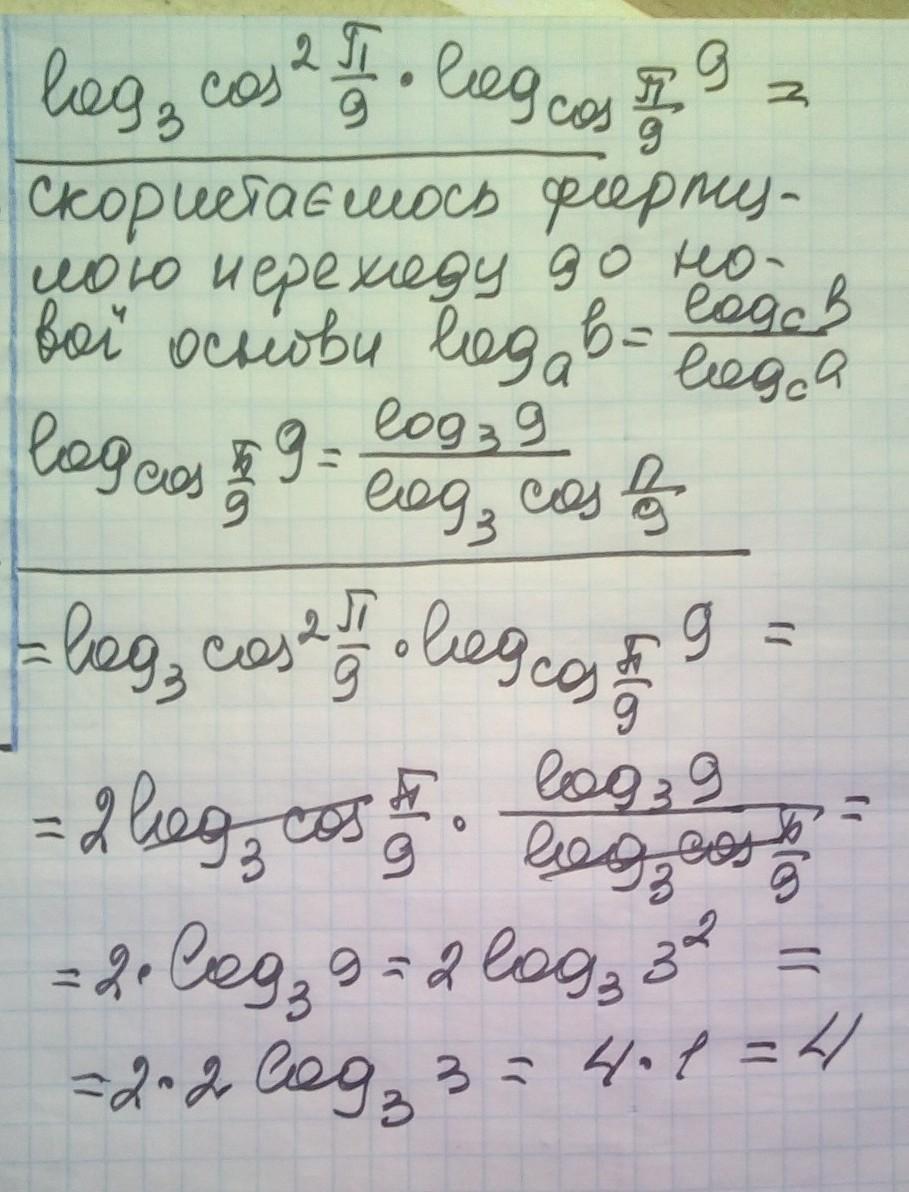 log₃ cos² π/9 · log_{cos π/9} 9 =
скористаємось форму-
лою переходу до но-
вої основи logₐ b = log_c b / log_c a
log_{cos π/9} 9 = log₃ 9 / log₃ cos π/9
= log₃ cos² π/9 · log_{cos π/9} 9 =
= 2 log₃ cos π/9 · log₃ 9 / log₃ cos π/9 =
= 2 · log₃ 9 = 2 log₃ 3² =
= 2 · 2 log₃ 3 = 4 · 1 = 4